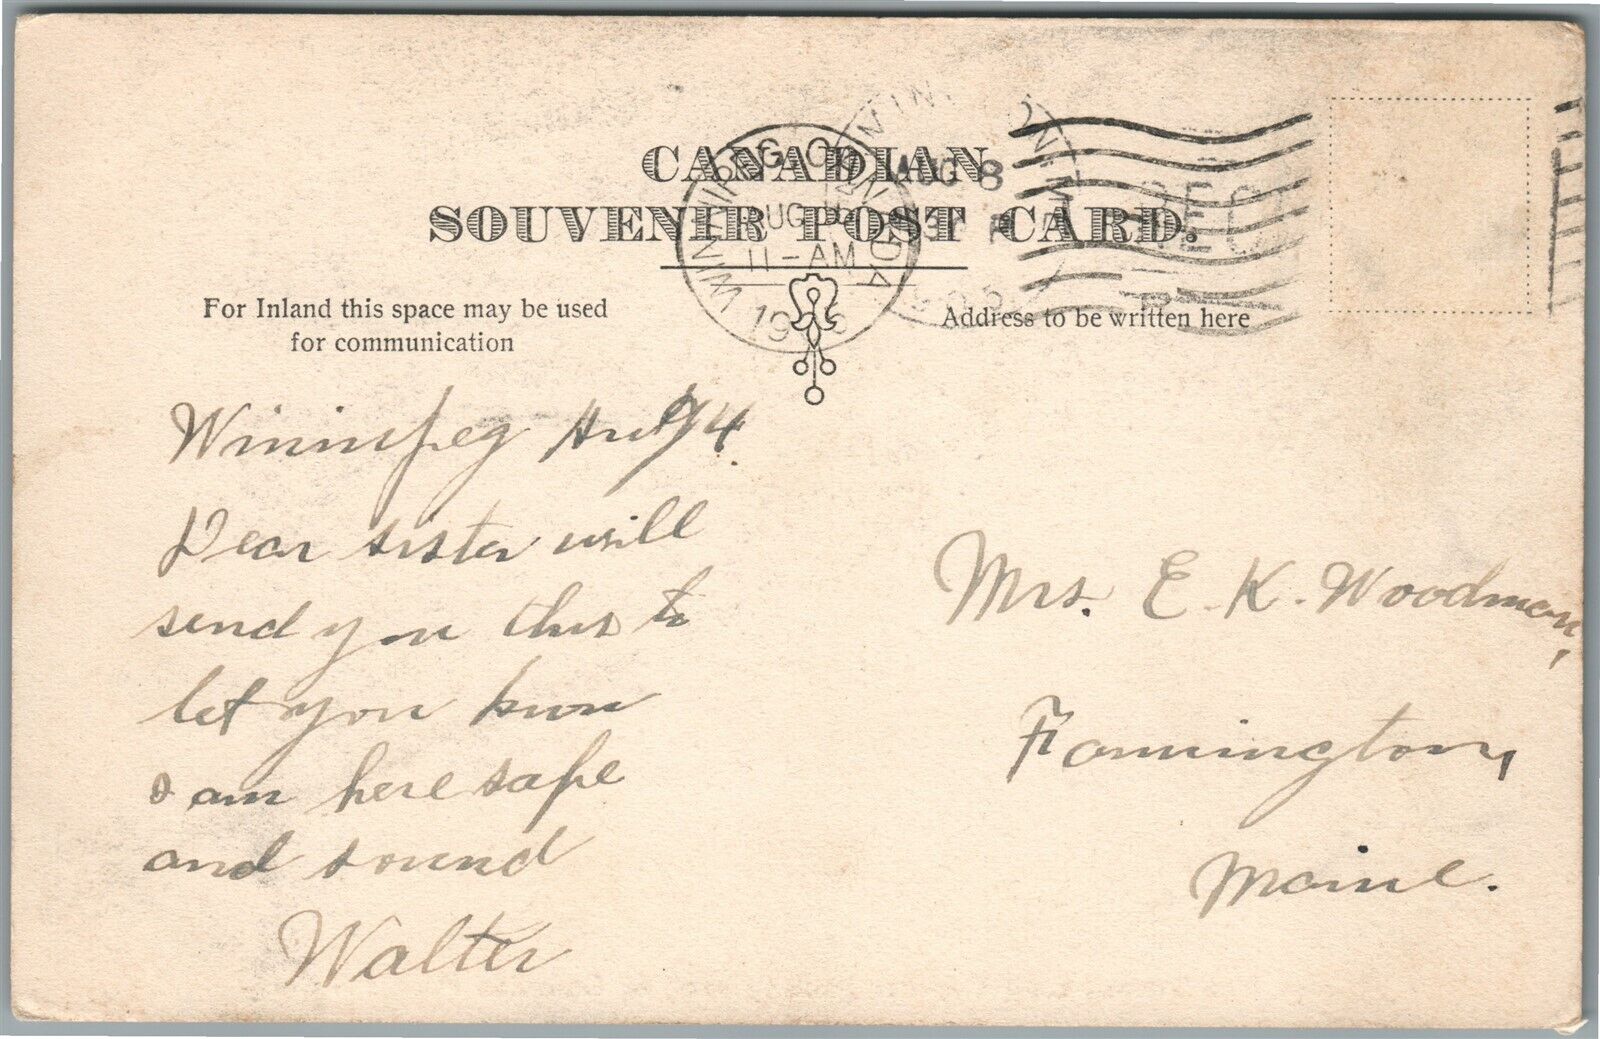 CANADIAN
SOUVENIR POST CARD.
WINNIPEG, CANADA
AUG
11-AM
FARMINGTON, ME.
AUG 8
REC'D
For Inland this space may be used
for communication
Address to be written here
Winnipeg Aug 4.
Dear sister will
send you this to
let you know
I am here safe
and sound
Walter
Mrs. E. K. Woodman,
Farmington,
Maine.